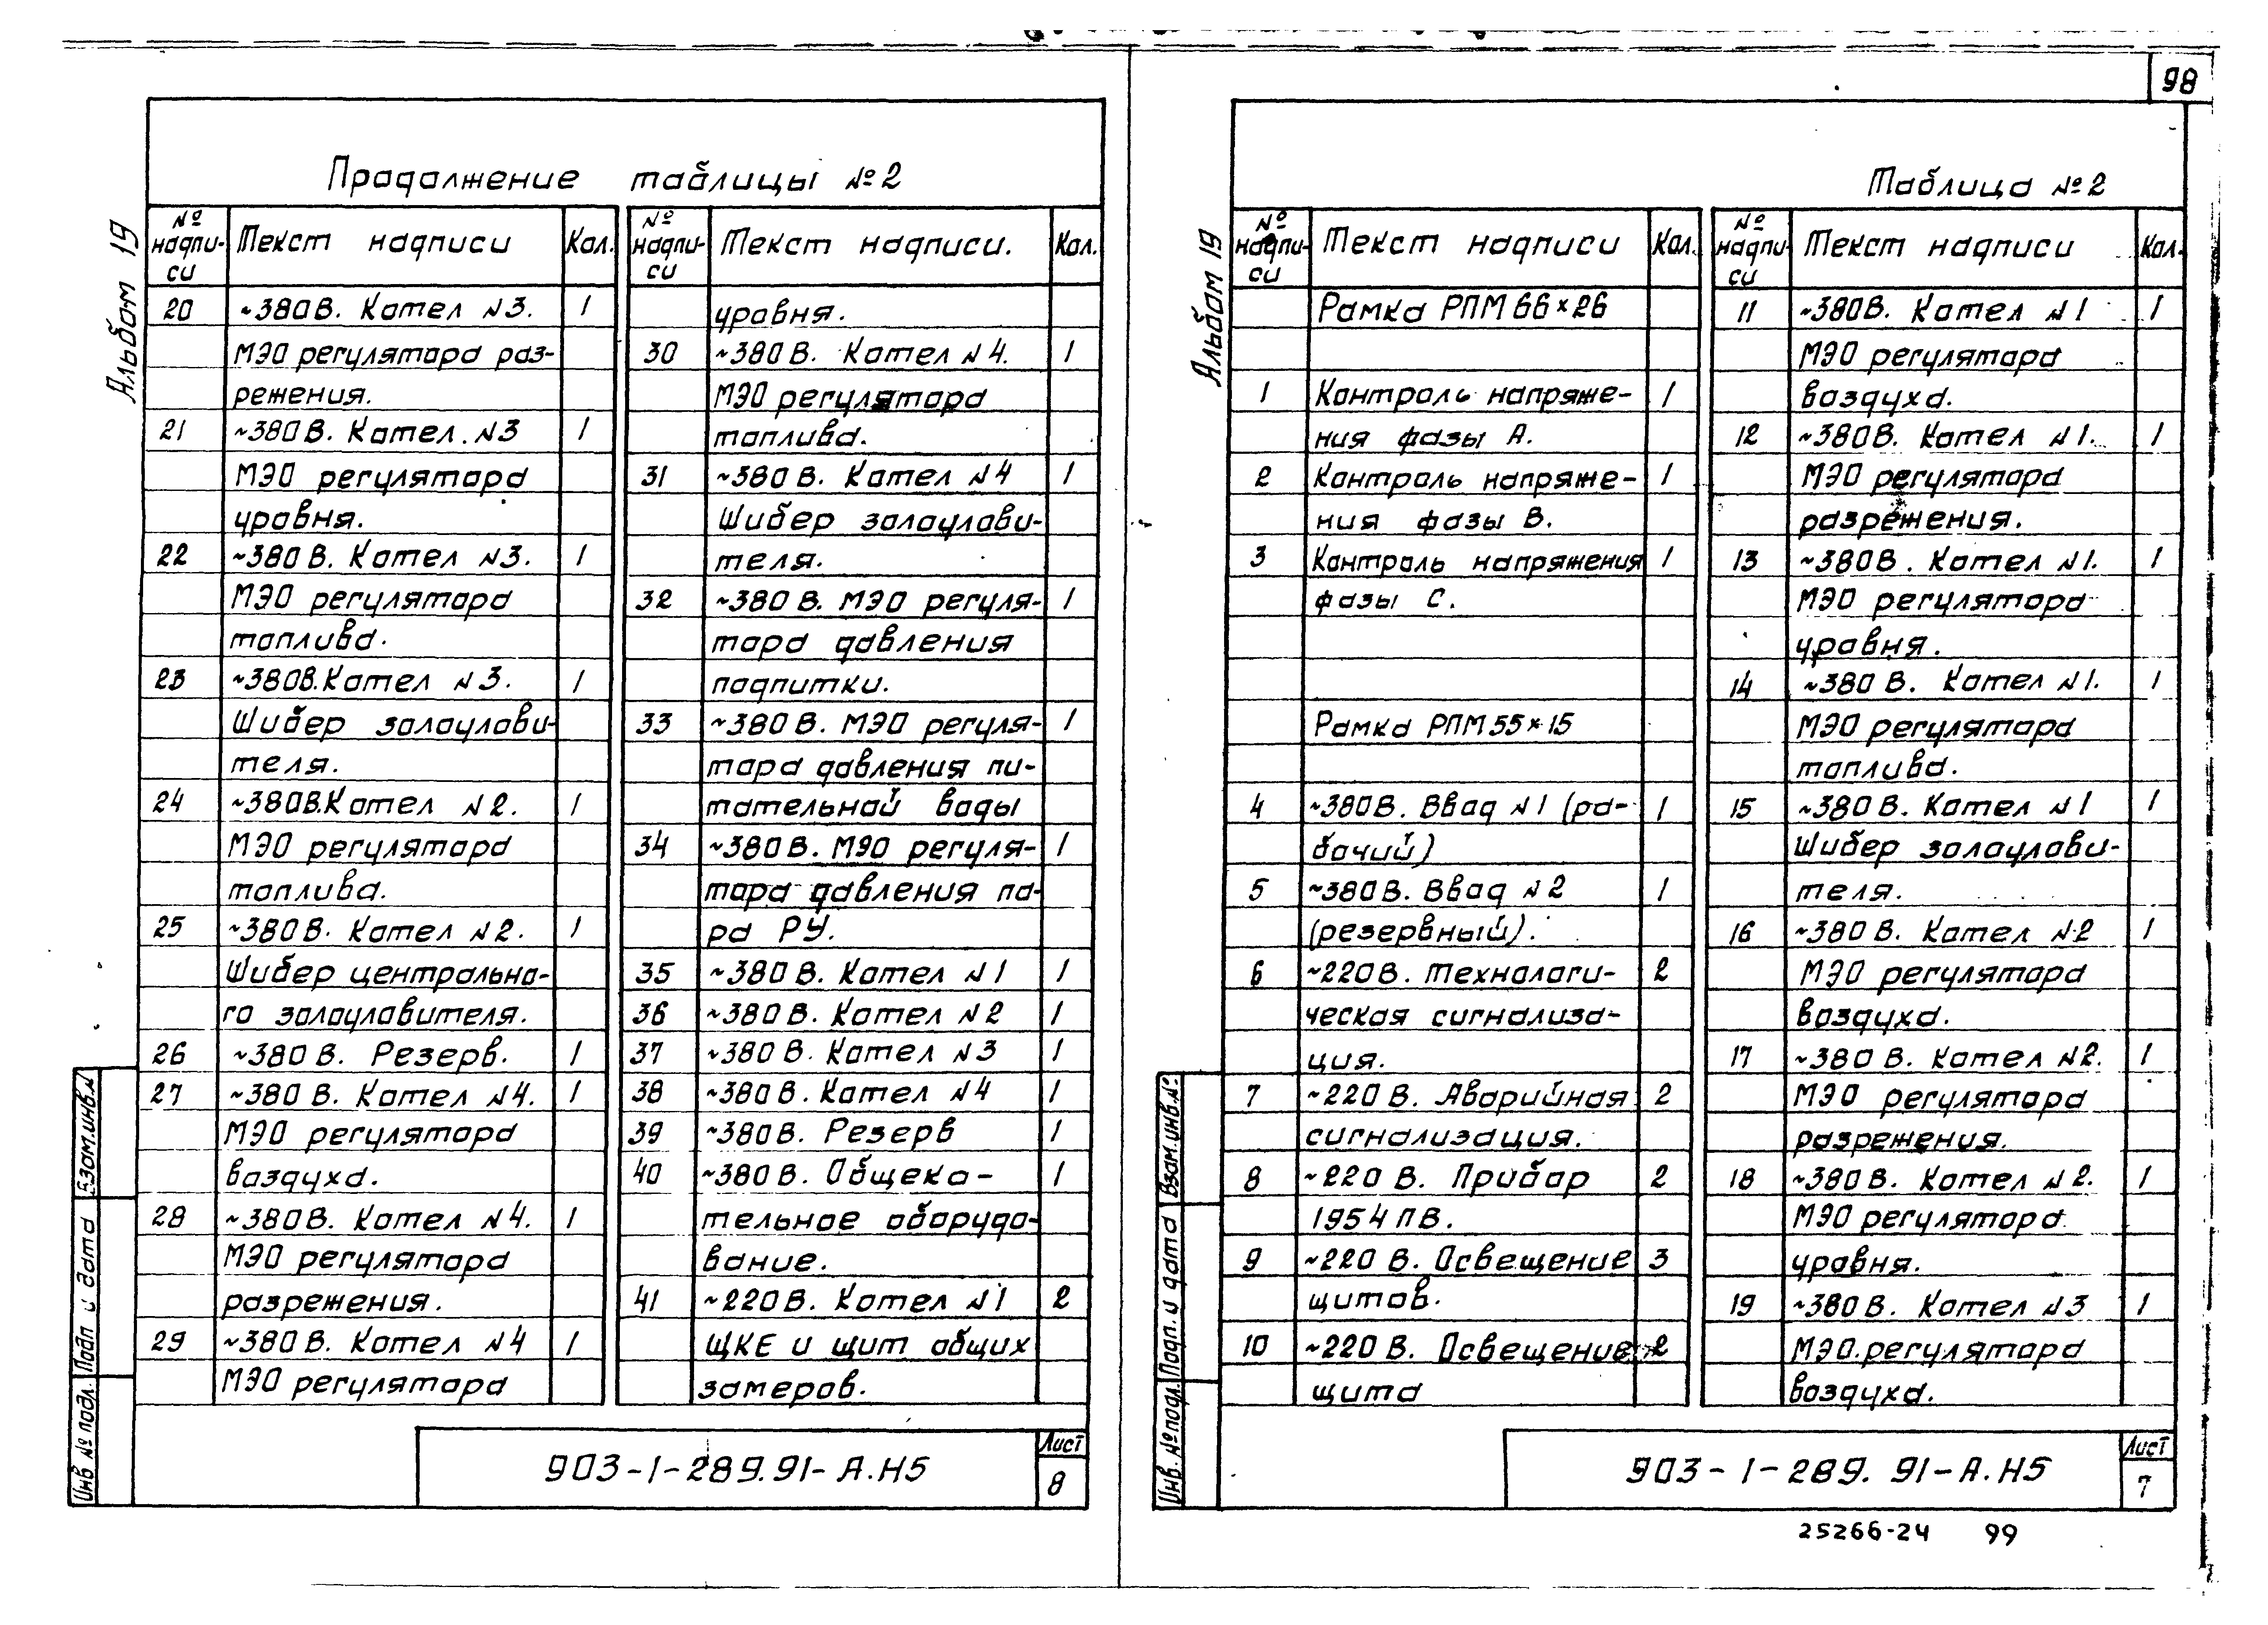 98
Альбом 19
Продолжение таблицы №2
№ надпи-си
Текст надписи
Кол.
20 ~380В. Котел №3. 1
МЭО регулятора раз-
режения.
21 ~380В. Котел №3 1
МЭО регулятора
уровня.
22 ~380В. Котел №3. 1
МЭО регулятора
топлива.
23 ~380В. Котел №3. 1
Шибер золоулови-
теля.
24 ~380В. Котел №2. 1
МЭО регулятора
топлива.
25 ~380В. Котел №2. 1
Шибер центрально-
го золоуловителя.
26 ~380В. Резерв. 1
27 ~380В. Котел №4. 1
МЭО регулятора
воздуха.
28 ~380В. Котел №4. 1
МЭО регулятора
разрежения.
29 ~380В. Котел №4 1
МЭО регулятора
№ надпи-си
Текст надписи.
Кол.
уровня.
30 ~380В. Котел №4. 1
МЭО регулятора
топлива.
31 ~380В. Котел №4 1
Шибер золоулови-
теля.
32 ~380В. МЭО регуля- 1
тора давления
подпитки.
33 ~380В. МЭО регуля- 1
тора давления пи-
тательной воды
34 ~380В. МЭО регуля- 1
тора давления па-
ра РУ.
35 ~380В. Котел №1 1
36 ~380В. Котел №2 1
37 ~380В. Котел №3 1
38 ~380В. Котел №4 1
39 ~380В. Резерв 1
40 ~380В. Общеко- 1
тельное оборудо-
вание.
41 ~220В. Котел №1 2
ЩКЕ и щит общих
замеров.
Взам.инв.№
Подп и дата
Инв № подл.
903-1-289.91-А.Н5
Лист
8
Альбом 19
Таблица №2
№ надпи-си
Текст надписи
Кол.
Рамка РПМ 66×26
1 Контроль напряже- 1
ния фазы А.
2 Контроль напряже- 1
ния фазы В.
3 Контроль напряжения 1
фазы С.
Рамка РПМ 55×15
4 ~380В. Ввод №1 (ра- 1
бочий)
5 ~380В. Ввод №2 1
(резервный).
6 ~220В. Технологи- 2
ческая сигнализа-
ция.
7 ~220В. Аварийная 2
сигнализация.
8 ~220В. Прибор 2
1954ПВ.
9 ~220В. Освещение 3
щитов.
10 ~220В. Освещение 2
щита
№ надпи-си
Текст надписи
Кол.
11 ~380В. Котел №1 1
МЭО регулятора
воздуха.
12 ~380В. Котел №1. 1
МЭО регулятора
разрежения.
13 ~380В. Котел №1. 1
МЭО регулятора
уровня.
14 ~380В. Котел №1. 1
МЭО регулятора
топлива.
15 ~380В. Котел №1 1
Шибер золоулови-
теля.
16 ~380В. Котел №2 1
МЭО регулятора
воздуха.
17 ~380В. Котел №2. 1
МЭО регулятора
разрежения.
18 ~380В. Котел №2. 1
МЭО регулятора
уровня.
19 ~380В. Котел №3 1
МЭО регулятора
воздуха.
Взам.инв.№
Подп. и дата
Инв. № подл.
903-1-289.91-А.Н5
Лист
7
25266-24 99